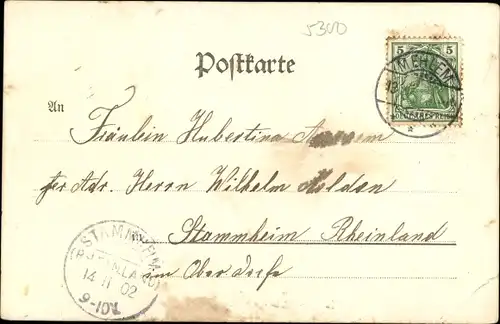 5300
5 5
MEHLEM
Postkarte
An
Fräulein Hubertina
per Adr. Herrn Wilhelm
Stammheim Rheinland
im Ober dorfe
STAMMHEIM
(RHEINLAND)
14 11 02
9-10V.